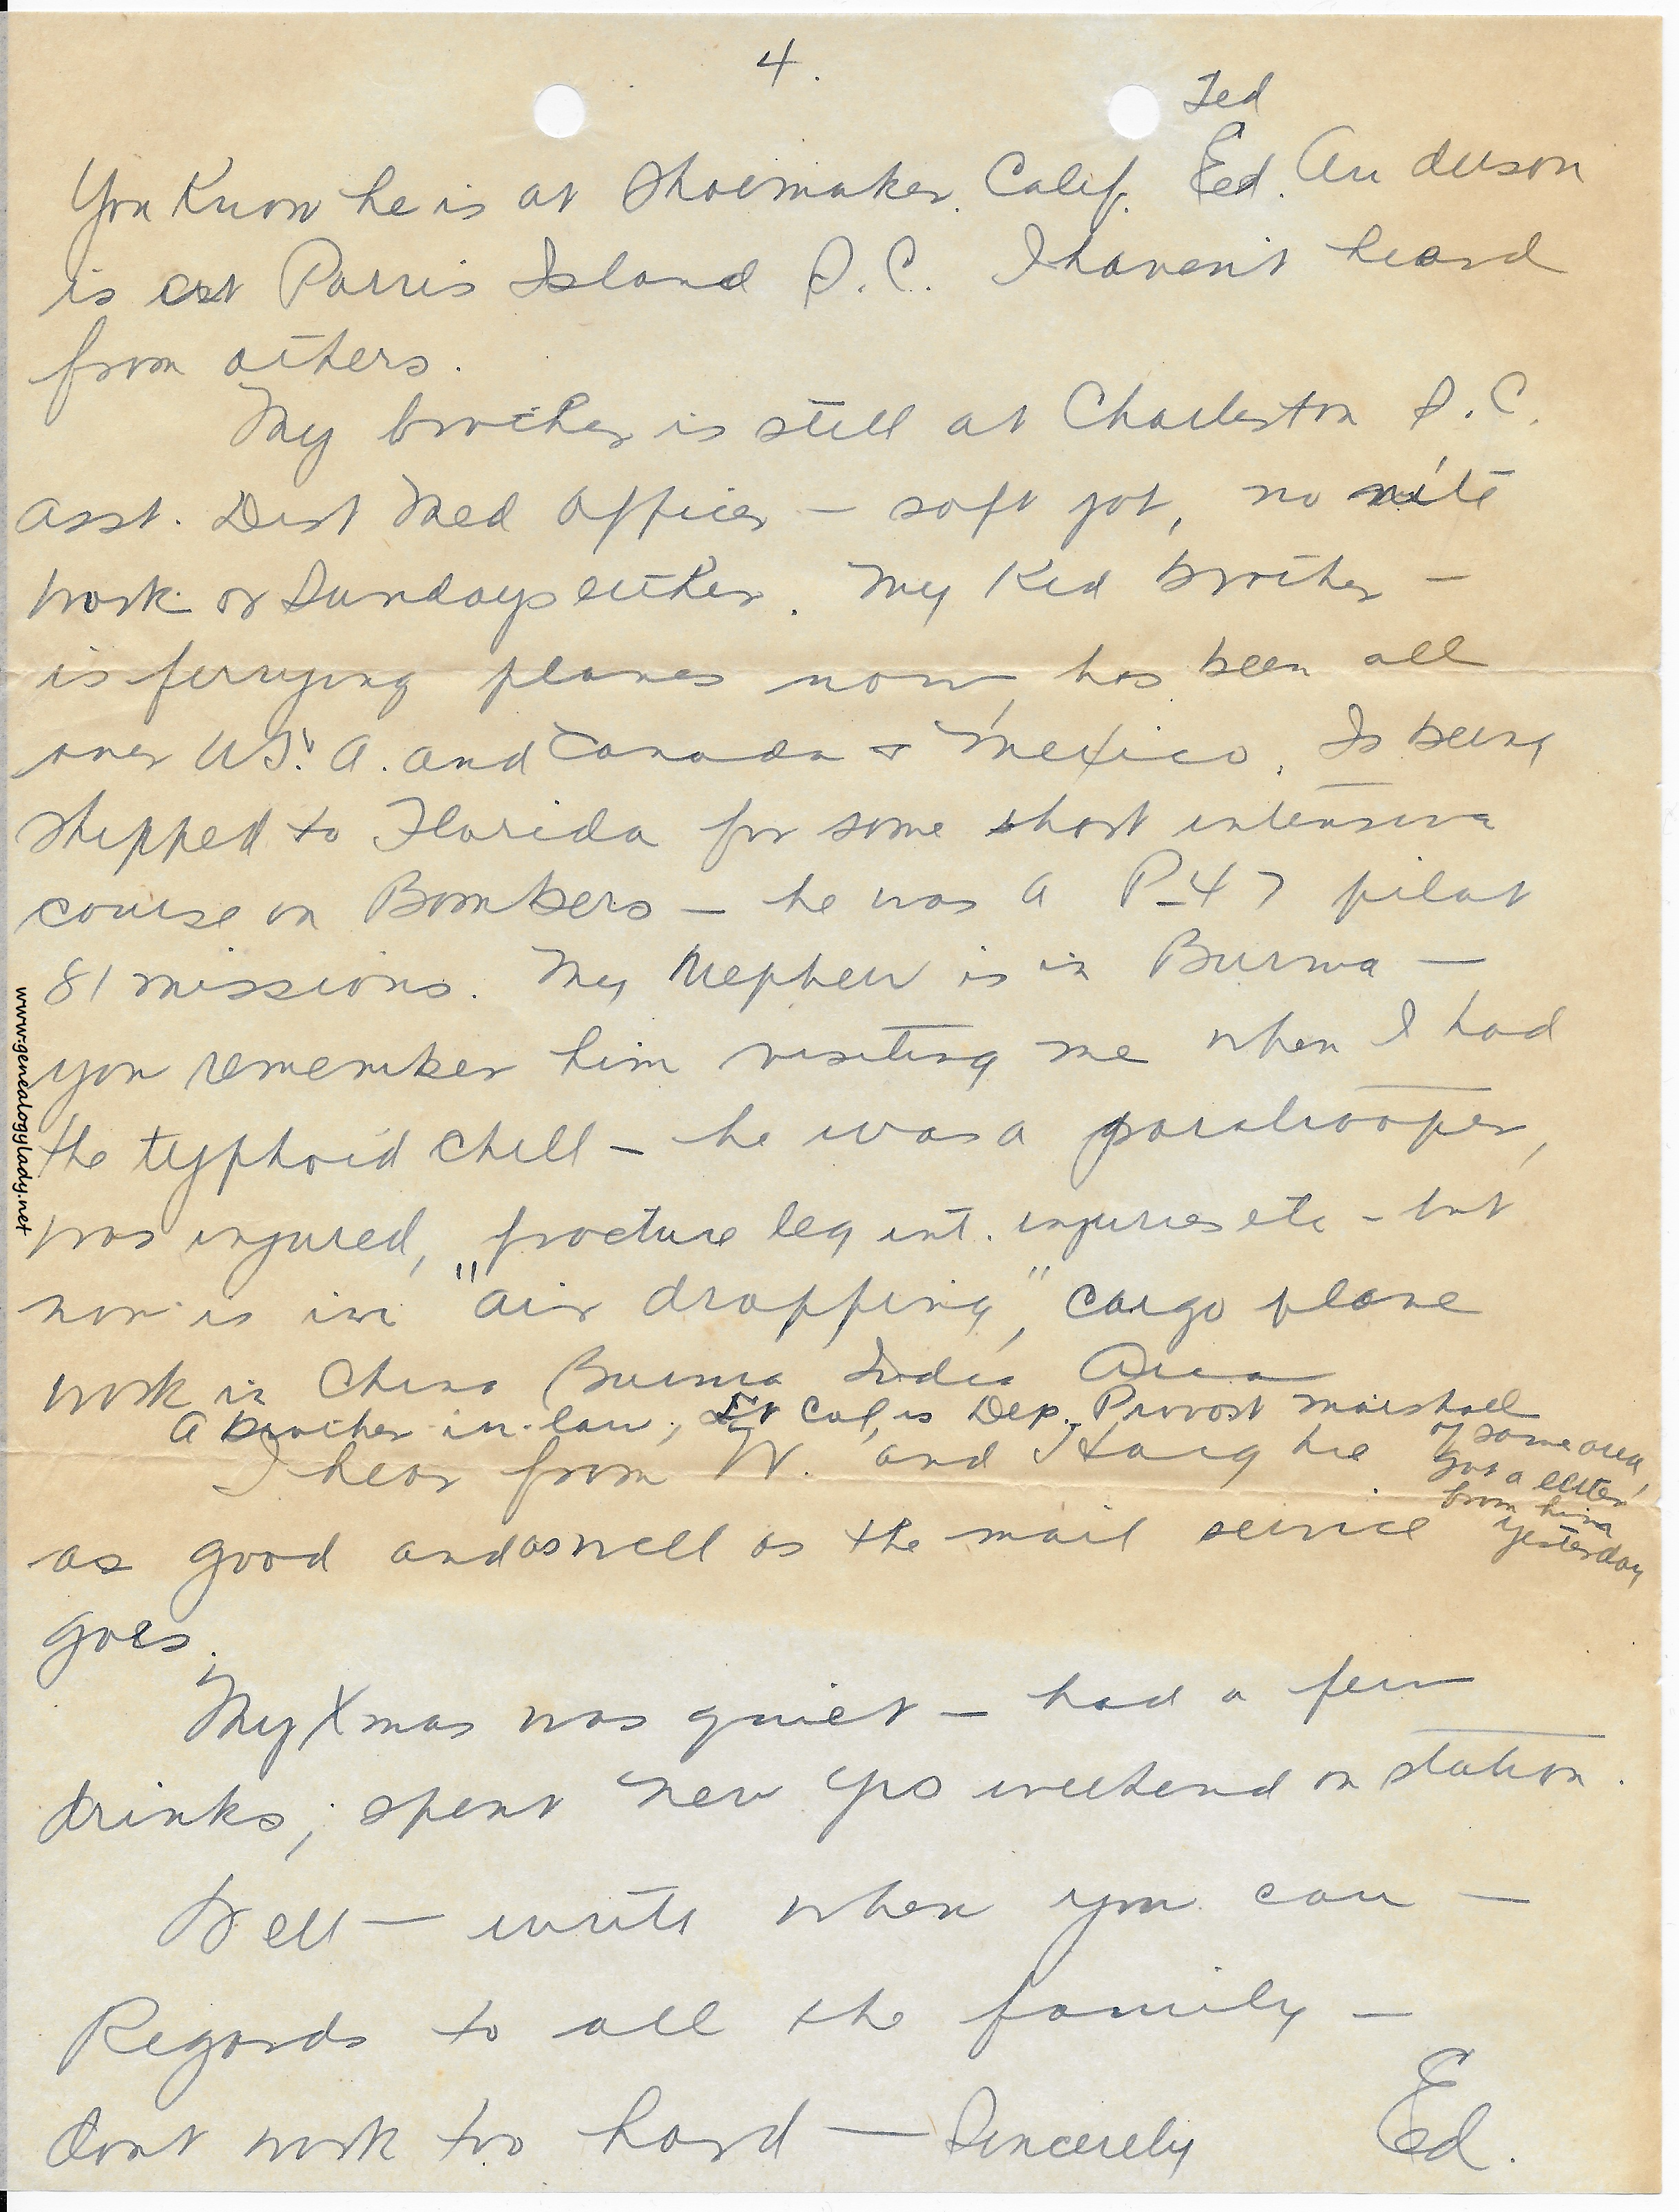 4.
Ted
You Know he is at Shoemaker, Calif. Ed. Anderson
is at Parris Island S.C. I haven't heard
from others.
My brother is still at Charleston S.C.
asst. Dist Med Officer — soft jot, no nite
work or Sundays either. My Kid brother —
is ferrying planes now, has been all
over U.S.A. and Canada & Mexico. Is being
shipped to Florida for some short intensive
course on Bombers — he was a P-47 pilot
81 missions. My Nephew is in Burma —
you remember him visiting me when I had
the typhoid chill — he was a paratrooper,
was injured, fracture leg int. injuries etc — but
now is in "air dropping," cargo plane
work in China Burma India Area
A brother-in-law, Lt Col, is Dep. Provost Marshall
of some area,
got a letter
from him
yesterday
I hear from W. and
as good and as well as the mail service
goes.
My Xmas was quiet — had a few
drinks; spent New Yrs weekend on station.
Well — write when you can —
Regards to all the family —
dont work too hard — Sincerely Ed.
www.genealogylady.net